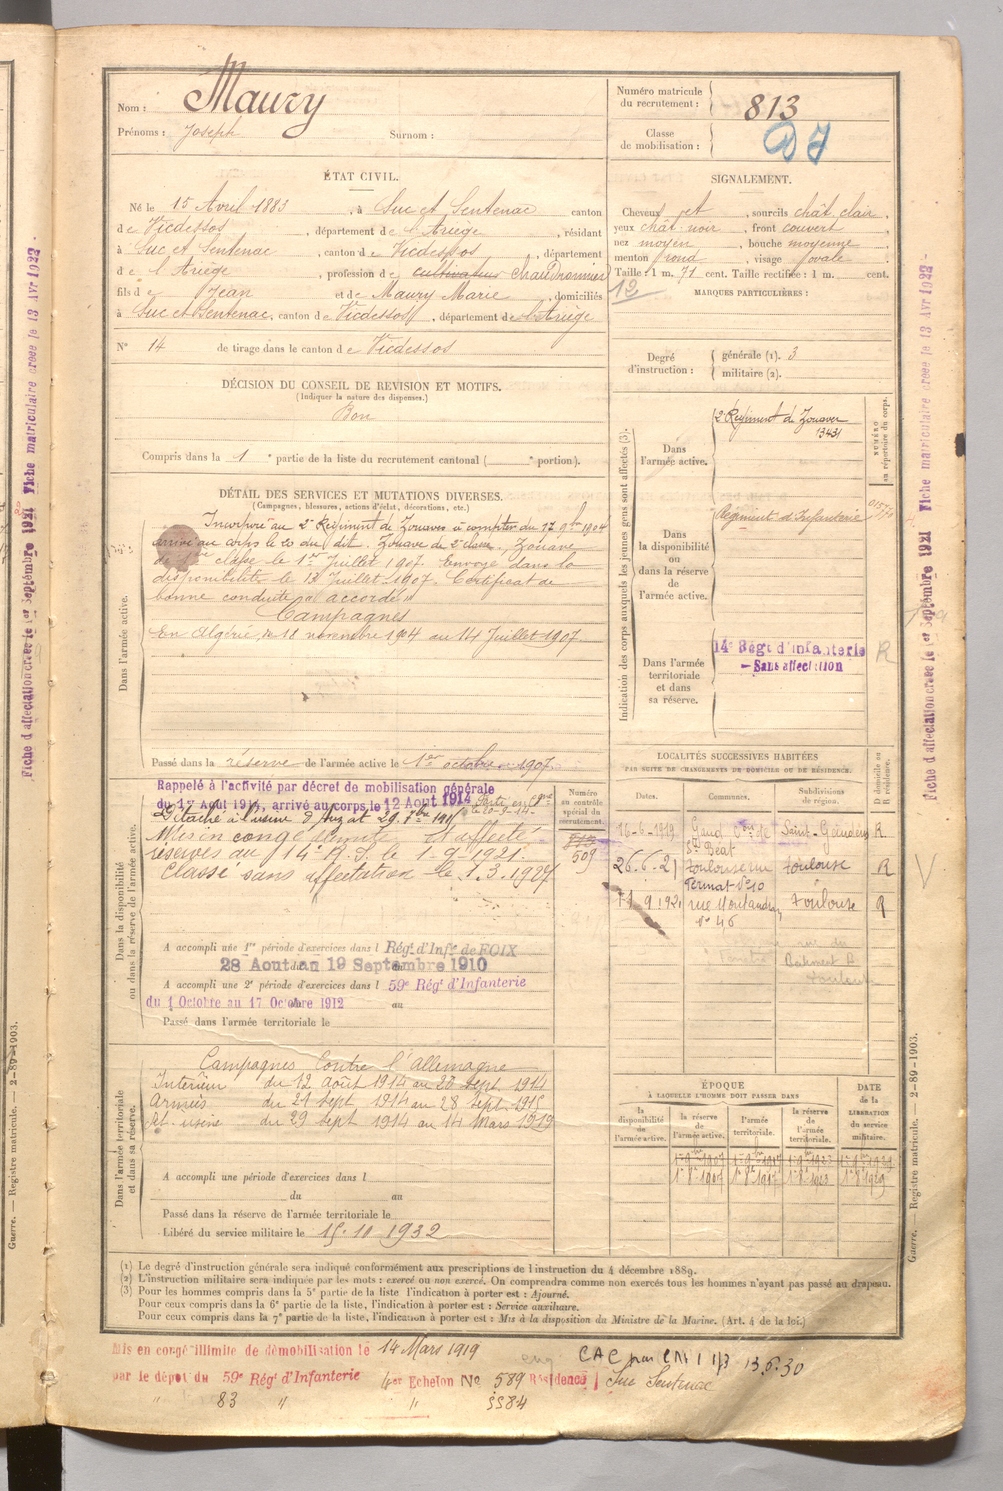 Nom : Maury
Prénoms : Joseph Surnom :
Numéro matricule
du recrutement : 813
Classe
de mobilisation :
ÉTAT CIVIL.
Né le 15 Avril 1883, à Suc et Sentenac canton
de Vicdessos, département de l'Ariège, résidant
à Suc et Sentenac, canton de Vicdessos, département
de l'Ariège, profession de cultivateur
fils de Jean et de Maury Marie, domiciliés
à Suc et Sentenac, canton de Vicdessos, département de l'Ariège
N° 14 de tirage dans le canton de Vicdessos
SIGNALEMENT.
Cheveux et, sourcils chât clair,
yeux chât noir, front couvert,
nez moyen, bouche moyenne,
menton rond, visage ovale.
Taille : 1 m. 71 cent. Taille rectifiée : 1 m. cent.
12
MARQUES PARTICULIÈRES :
Degré
d'instruction :
générale (1). 3
militaire (2).
DÉCISION DU CONSEIL DE REVISION ET MOTIFS.
(Indiquer la nature des dispenses.)
Bon
Compris dans la 1e partie de la liste du recrutement cantonal ( e portion).
DÉTAIL DES SERVICES ET MUTATIONS DIVERSES.
(Campagnes, blessures, actions d'éclat, décorations, etc.)
Dans l'armée active.
Incorporé au 2e Régiment de Zouaves à compter du 17 9bre 1904
arrivé au corps le 20 du dit. Zouave de 2e classe. Zouave
de classe le 1er Juillet 1907. Envoyé dans la
disponibilité le 13 Juillet 1907. Certificat de
bonne conduite "accordé"
Campagnes
En Algérie, du 18 novembre 1904 au 14 Juillet 1907.
Passé dans la réserve de l'armée active le 1er octobre 1907
Indication des corps auxquels les jeunes gens sont affectés (3).
NUMÉRO
au répertoire du corps.
Dans
l'armée active.
2e Régiment de Zouaves
13431
Dans
la disponibilité
ou
dans la réserve
de
l'armée active.
Régiment d'Infanterie
Dans l'armée
territoriale
et dans
sa réserve.
14e Régt d'infanterie
- Sans affectation
R
Dans la disponibilité
ou dans la réserve de l'armée active.
Rappelé à l'activité par décret de mobilisation générale
du 1er Août 1914, arrivé au corps le 12 Août 1914
Détaché à l'usine
Mis en congé illimité et affecté
réserves au 14e R.I. le 1-9-1921.
Classé sans affectation le 1.3.1927
Numéro
au contrôle
spécial du
recrutement.
509
A accompli une 1re période d'exercices dans l Régt d'Infie de FOIX
28 Aout au 19 Septembre 1910
A accompli une 2e période d'exercices dans l 59e Régt d'Infanterie
du 1 Octobre au 17 Octobre 1912 au
Passé dans l'armée territoriale le
LOCALITÉS SUCCESSIVES HABITÉES
PAR SUITE DE CHANGEMENTS DE DOMICILE OU DE RÉSIDENCE.
Dates. Communes. Subdivisions
de région. D domicile ou
R résidence.
16-6-1919 Gaud Saint-Gaudens R
St Béat
26.6.21 Toulouse rue Toulouse R
Fermat No 10
rue Toulouse R
No 46
Dans l'armée territoriale
et dans sa réserve.
Campagnes Contre l'Allemagne
Intérieur du 12 août 1914 au 20 sept 1914
Armées du 21 sept 1914 au 28 sept 1915
At. usine du 29 sept 1914 au 14 Mars 1919
A accompli une période d'exercices dans l
du au
Passé dans la réserve de l'armée territoriale le
Libéré du service militaire le 15-10-1932
ÉPOQUE
À LAQUELLE L'HOMME DOIT PASSER DANS
la
disponibilité
de
l'armée active.
la réserve
de
l'armée active.
l'armée
territoriale.
la réserve
de
l'armée
territoriale.
DATE
de la
LIBÉRATION
du service
militaire.
(1) Le degré d'instruction générale sera indiqué conformément aux prescriptions de l'instruction du 4 décembre 1889.
(2) L'instruction militaire sera indiquée par les mots : exercé ou non exercé. On comprendra comme non exercés tous les hommes n'ayant pas passé au drapeau.
(3) Pour les hommes compris dans la 5e partie de la liste l'indication à porter est : Ajourné.
Pour ceux compris dans la 6e partie de la liste, l'indication à porter est : Service auxiliaire.
Pour ceux compris dans la 7e partie de la liste, l'indication à porter est : Mis à la disposition du Ministre de la Marine. (Art. 4 de la loi.)
Mis en congé illimité de démobilisation le 14 Mars 1919
par le dépôt du 59e Régt d'Infanterie 4er Echelon No 589 Résidence Suc Sentenac
83 " " 5584
13.6.30
Fiche d'affectation créée le 1er Septembre 1921 Fiche matriculaire créée le 13 Avr 1922
Fiche d'affectation créée le 1er Septembre 1921 Fiche matriculaire créée le 13 Avr 1922
Guerre. — Registre matricule. — 2-89-1903.
Guerre. — Registre matricule. — 2-89-1903.